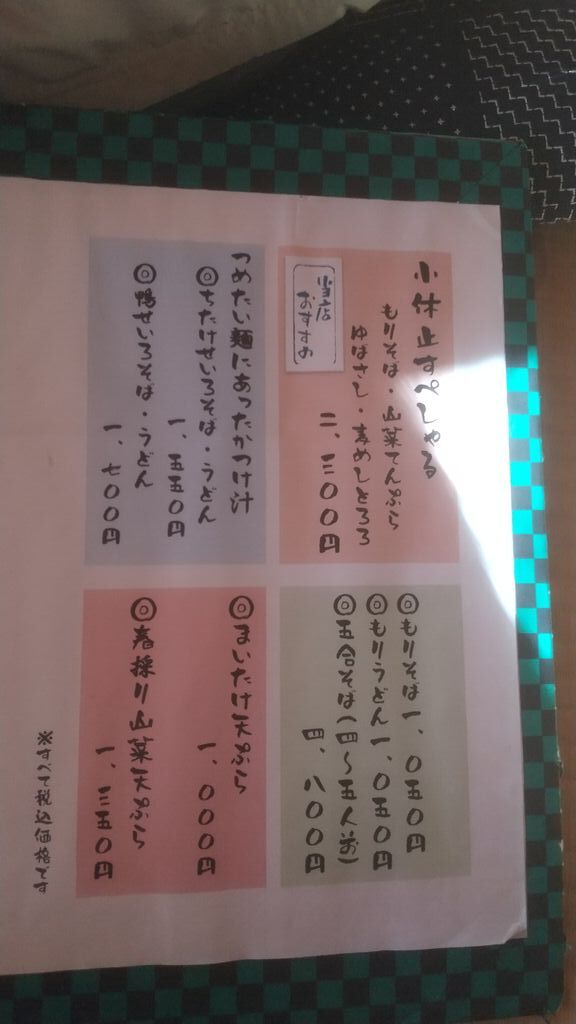 小休止すぺしゃる
もりそば・山菜てんぷら
ゆばさし・麦めしとろろ
二、三〇〇円
当店
おすすめ
◎もりそば 一、〇五〇円
◎もりうどん 一、〇五〇円
◎五合そば(四～五人前)
四、八〇〇円
つめたい麺にあったかつけ汁
◎ちたけせいろそば・うどん
一、五五〇円
◎鴨せいろそば・うどん
一、七〇〇円
◎まいたけ天ぷら
一、〇〇〇円
◎春採り山菜天ぷら
一、三五〇円
※すべて税込価格です